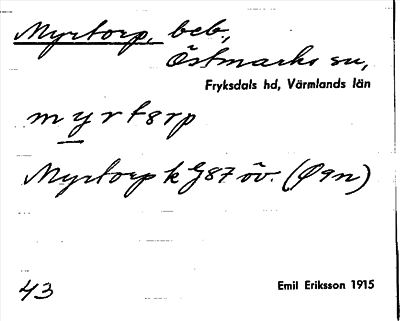 Myrtorp, beb.,
Östmarks sn,
Fryksdals hd, Värmlands län
myrtorp
Myrtorp k G87 öv. (Ø9n)
43
Emil Eriksson 1915